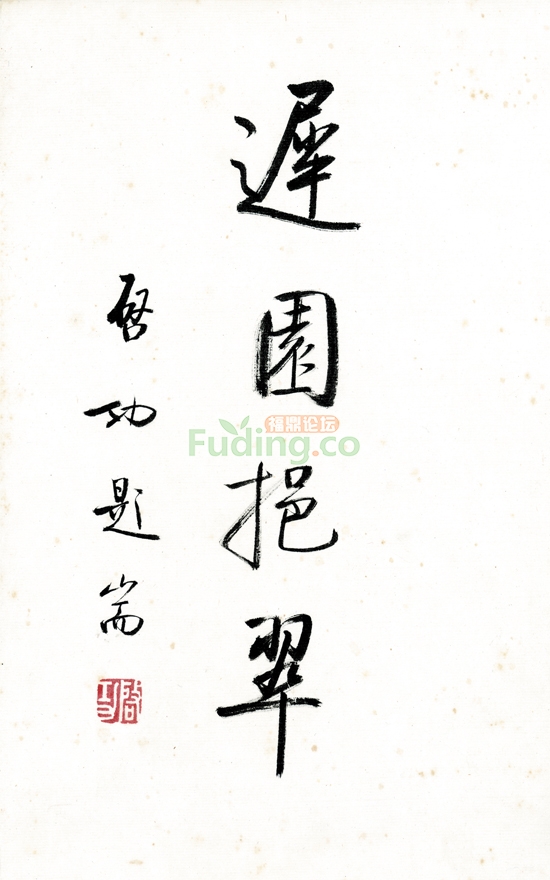 遲園挹翠
啓功題耑
啓功
福鼎论坛
Fuding.co